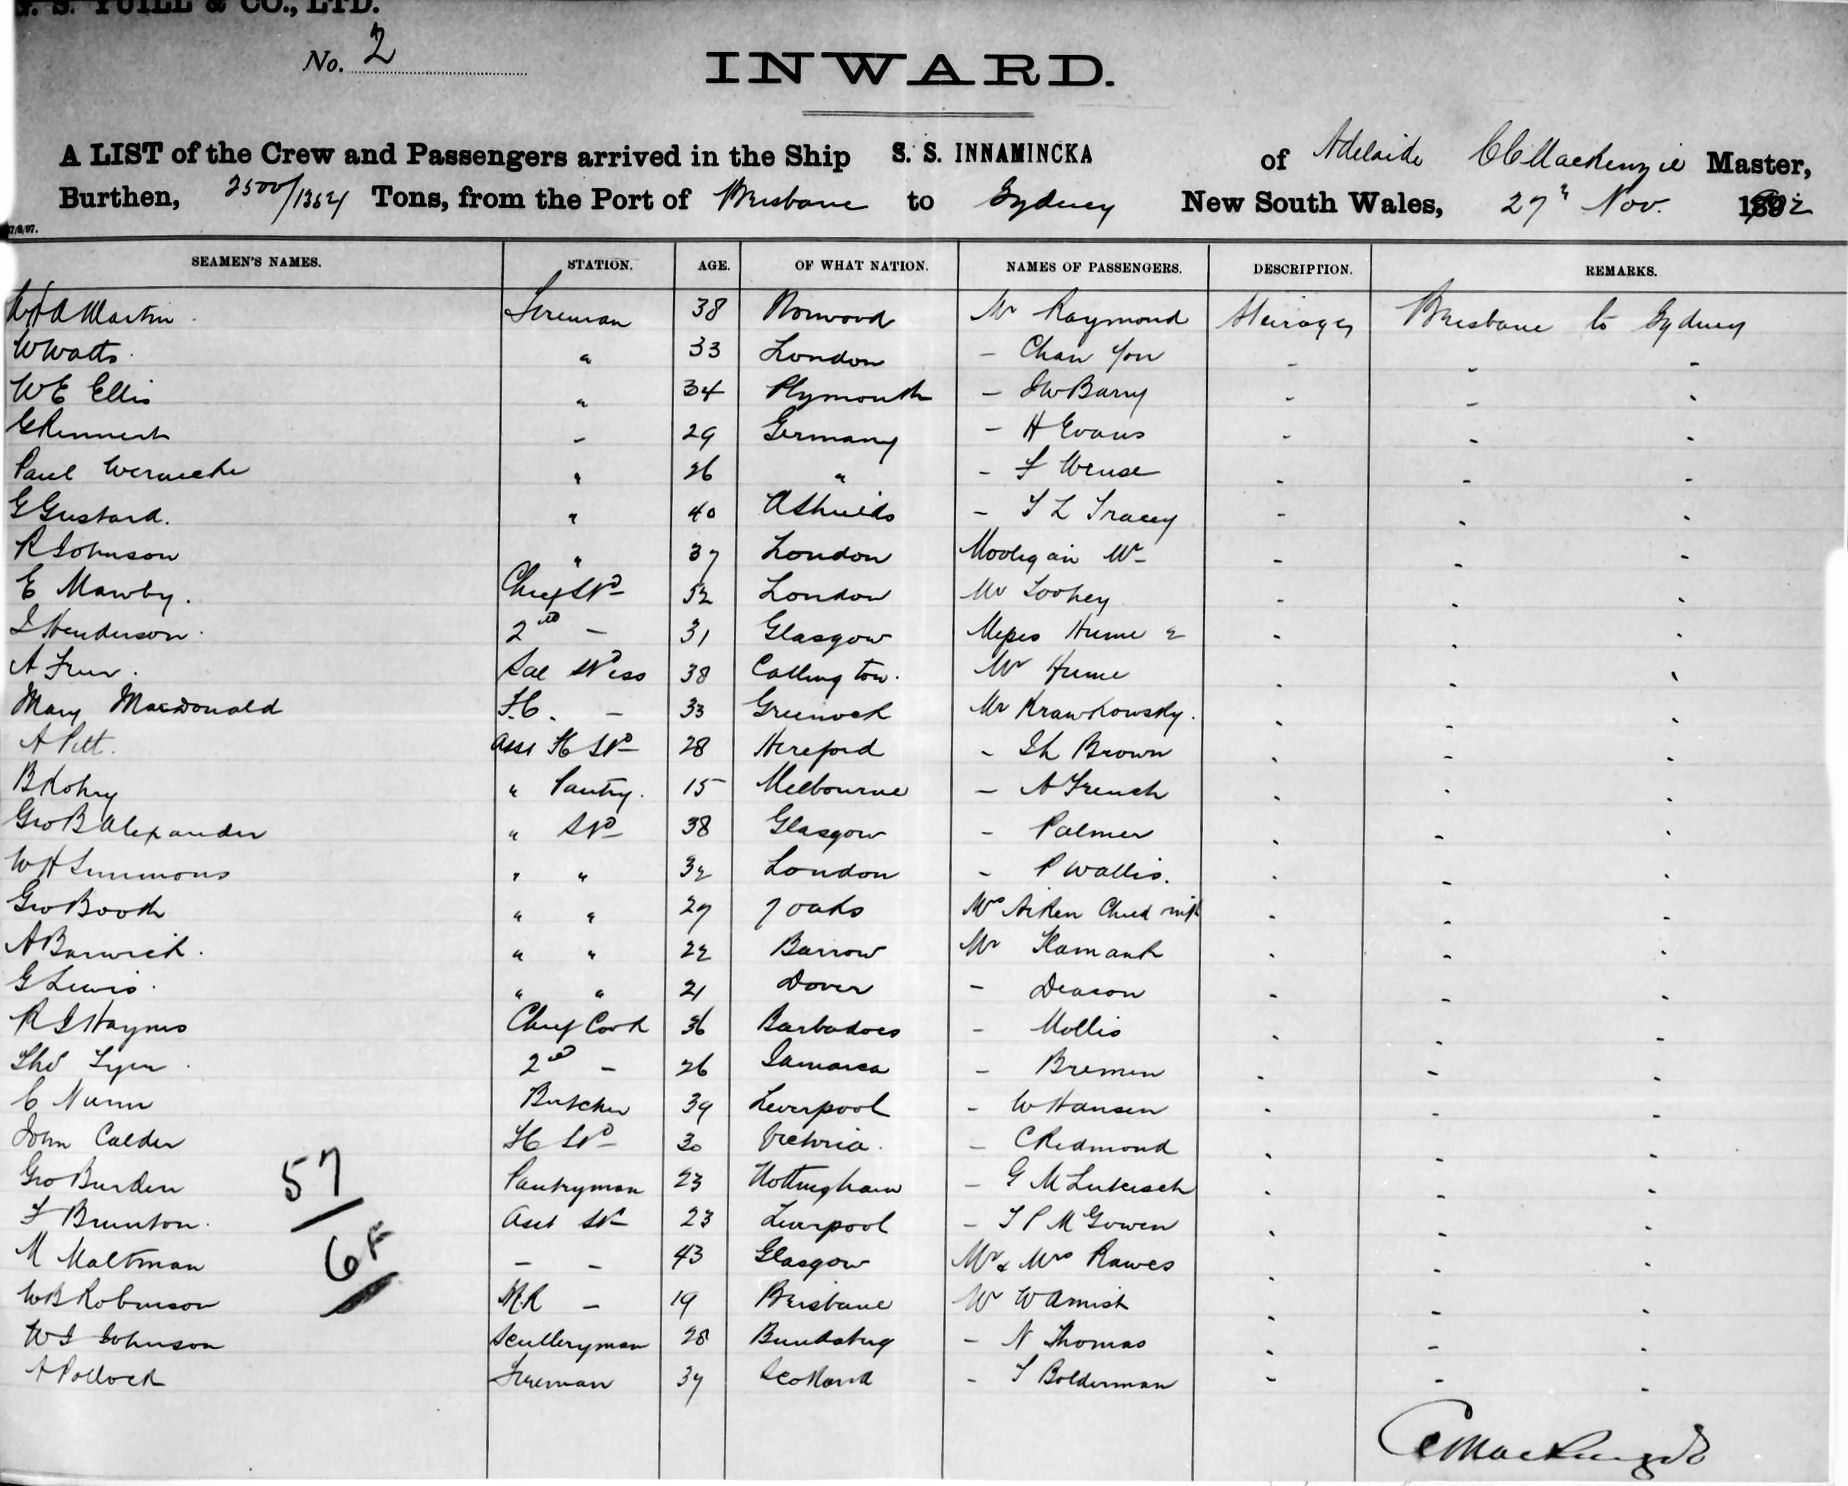 G. S. YUILL & CO., LTD.
No. 2
INWARD.
A LIST of the Crew and Passengers arrived in the Ship S. S. INNAMINCKA of Adelaide CC Mackenzie Master,
Burthen, 2500/1364 Tons, from the Port of Brisbane to Sydney New South Wales, 27" Nov. 1892
7/8/97.
SEAMEN'S NAMES. STATION. AGE. OF WHAT NATION. NAMES OF PASSENGERS. DESCRIPTION. REMARKS.
Martin Fireman 38 Norwood Mr Raymond Steirages Brisbane to Sydney
W Watts " 33 London - Chan You - - -
W E Ellis " 34 Plymouth - J W Barry - - -
G Rennert - 29 Germany - H Evans - - -
Paul Wernecke " 26 " - F - - -
G Gustard. " 40 Shields - T L Tracey - - -
R Johnson " 37 London Mr - - -
E Mawby. Chief Std 52 London Mr Toohey - - -
J Henderson 2nd - 31 Glasgow Misses Hume & - - -
A Frew Sal Stdess 38 Callington. Mr Hume - - -
Mary Macdonald F.C. - 33 Greenock Mr Krawkowsky. - - -
A Pitt. Asst FC Std 28 Hereford - Brown - - -
B Rohry " Pantry. 15 Melbourne - A French - - -
Geo B Alexander " Std 38 Glasgow - Palmer - - -
W H Simmons " " 32 London - P Wallis. - - -
Geo Booth " " 27 7 oaks Mrs Aiken Child inft - - -
A Barwick. " " 22 Barrow Mr - - -
G Lewis. " " 21 Dover - Deacon - - -
R J Haynes Chief Cook 36 Barbadoes - Mollis - - -
Thos Tyer 2nd - 26 Jamaica - Bremen - - -
C Nunn Butcher 39 Liverpool - W Hansen - - -
John Calder FC Std 30 Victoria. - C Redmond - - -
Geo Burden Pantryman 23 Nottingham - G M - - -
F Brunton. Asst Std 23 Liverpool - T P McGowen - - -
M Maltman - - 43 Glasgow Mr & Mrs Rawes - - -
W B Robinson M.R - 19 Brisbane Mr W Amish - - -
W J Johnson Sculleryman 28 Bundaberg - N Thomas - - -
A Pollock Fireman 37 Scotland - T Bolderman - - -
57
6F
CC Mackenzie